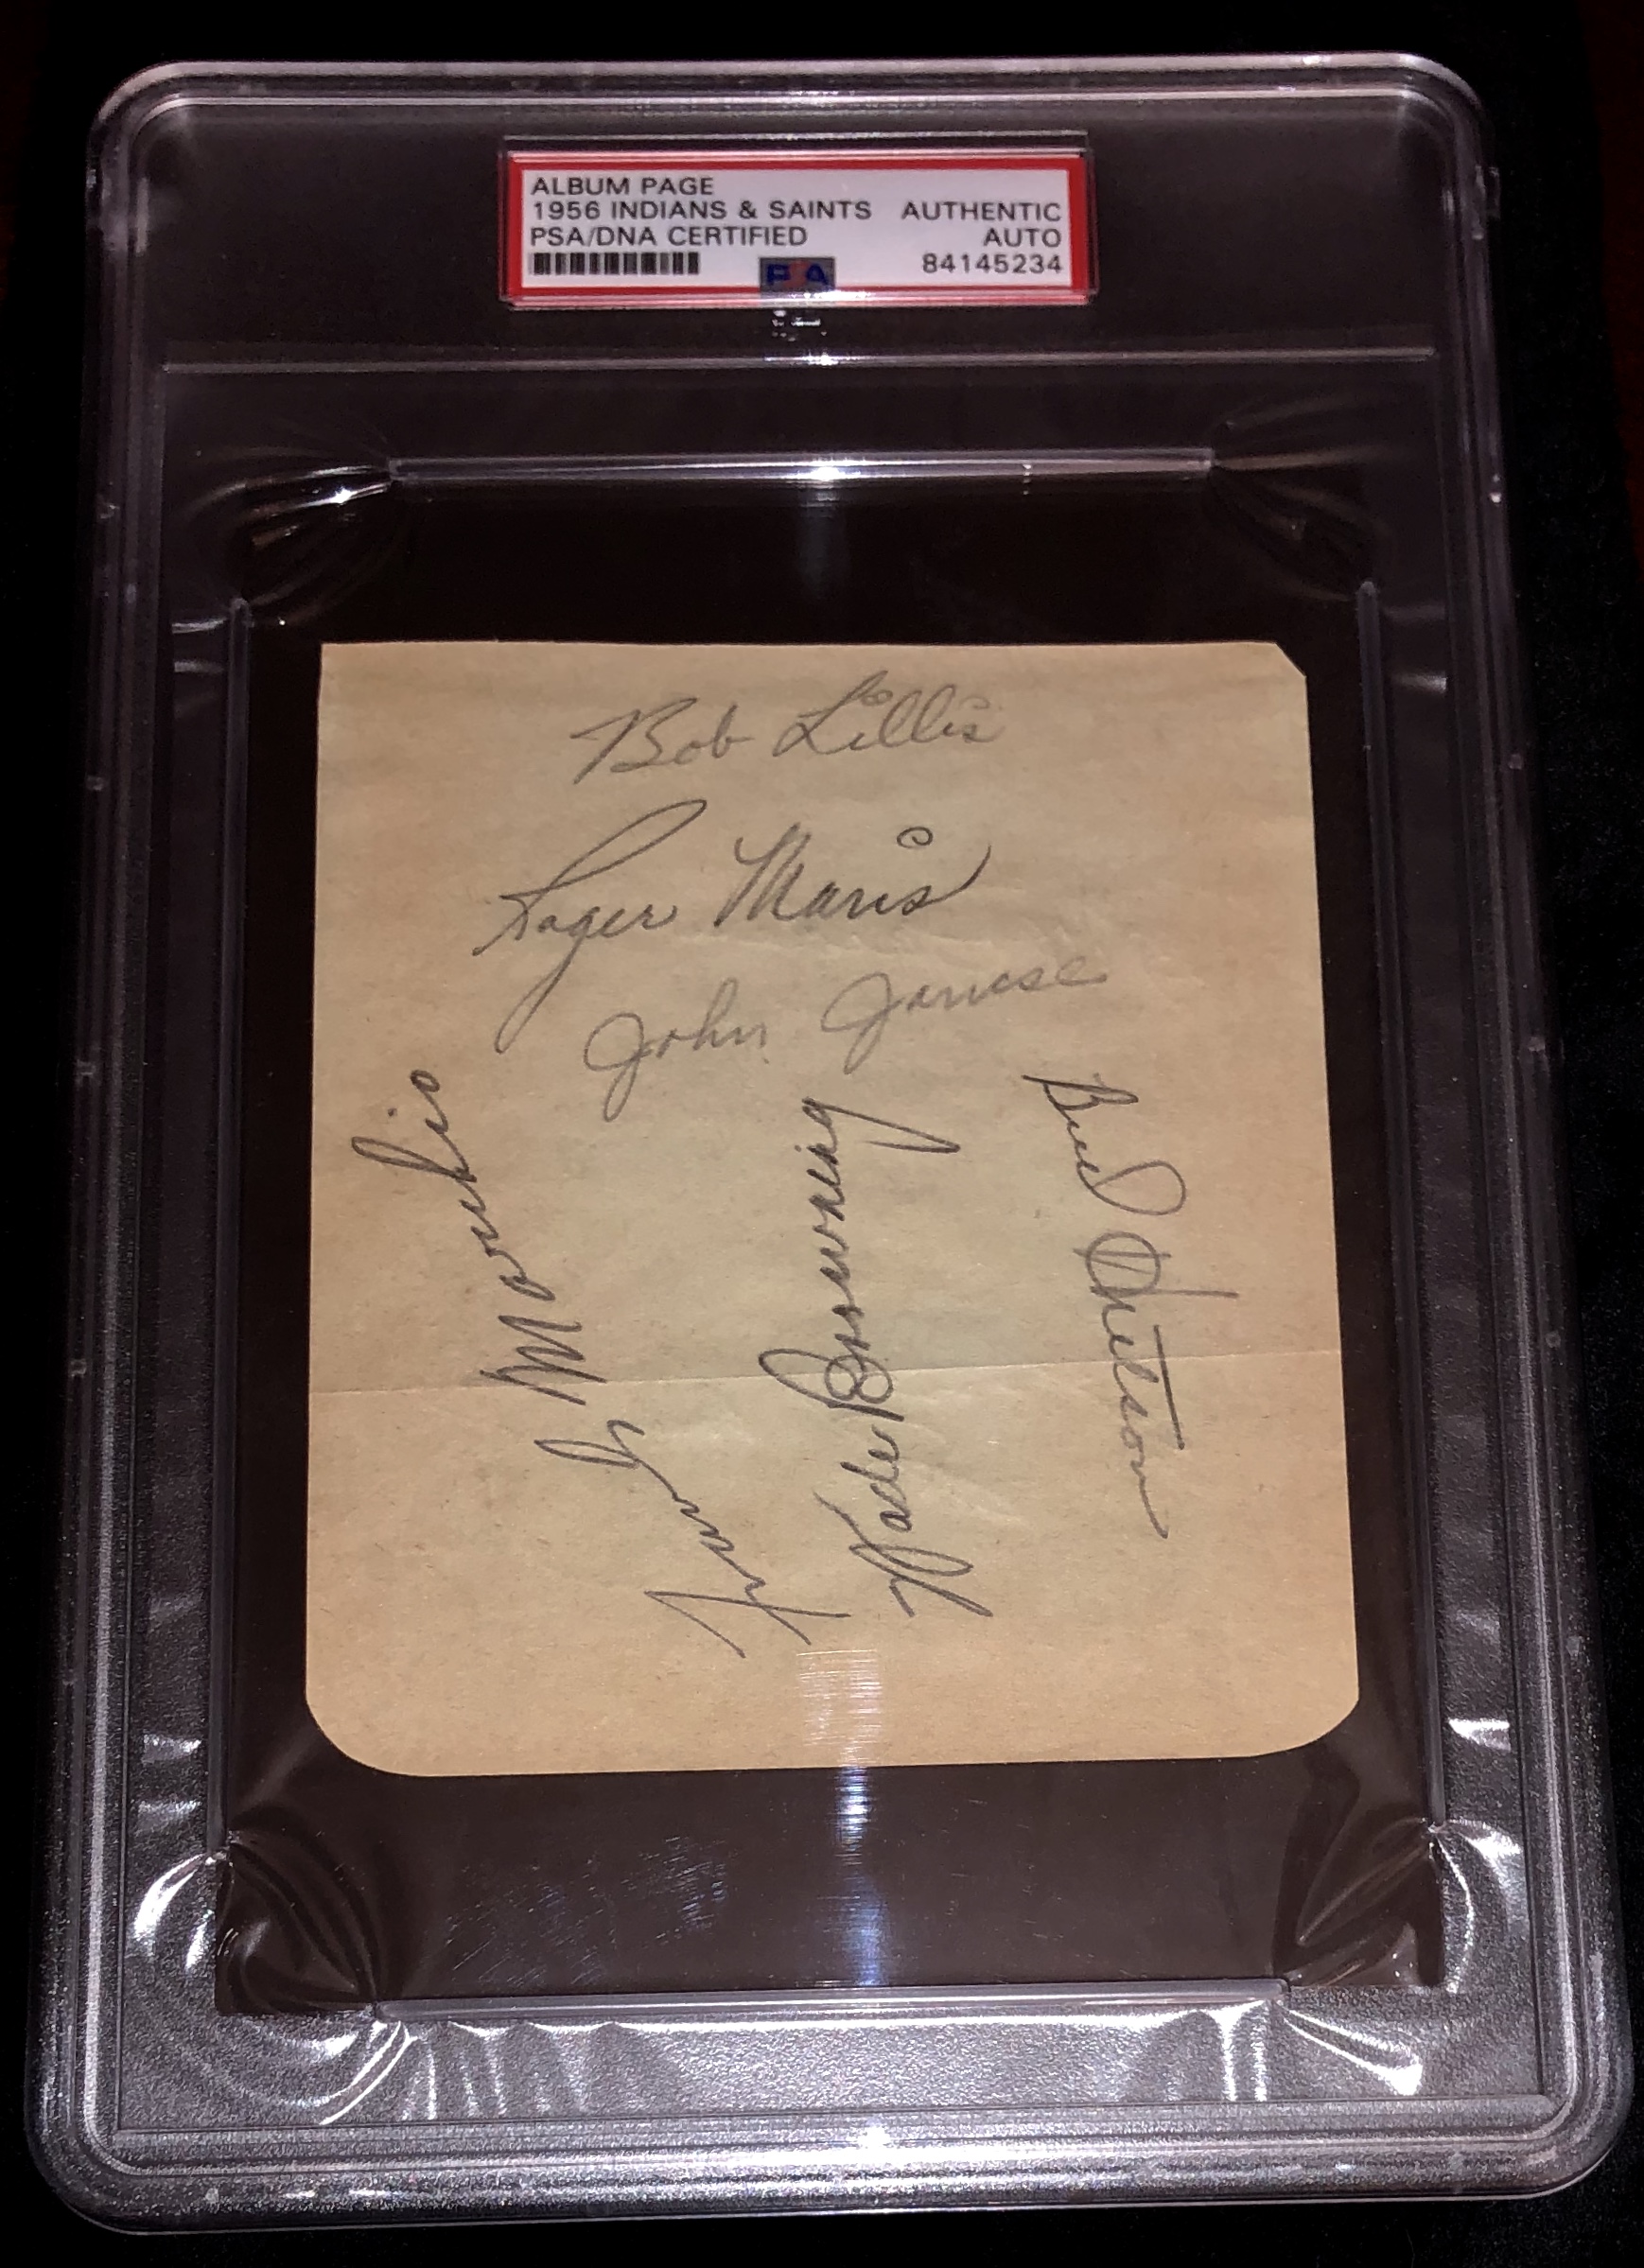 ALBUM PAGE
1956 INDIANS & SAINTS AUTHENTIC
PSA/DNA CERTIFIED AUTO
PSA 84145234
Bob Lillis
Roger Maris
John Jancse
Frank
Wade Browning
Bud